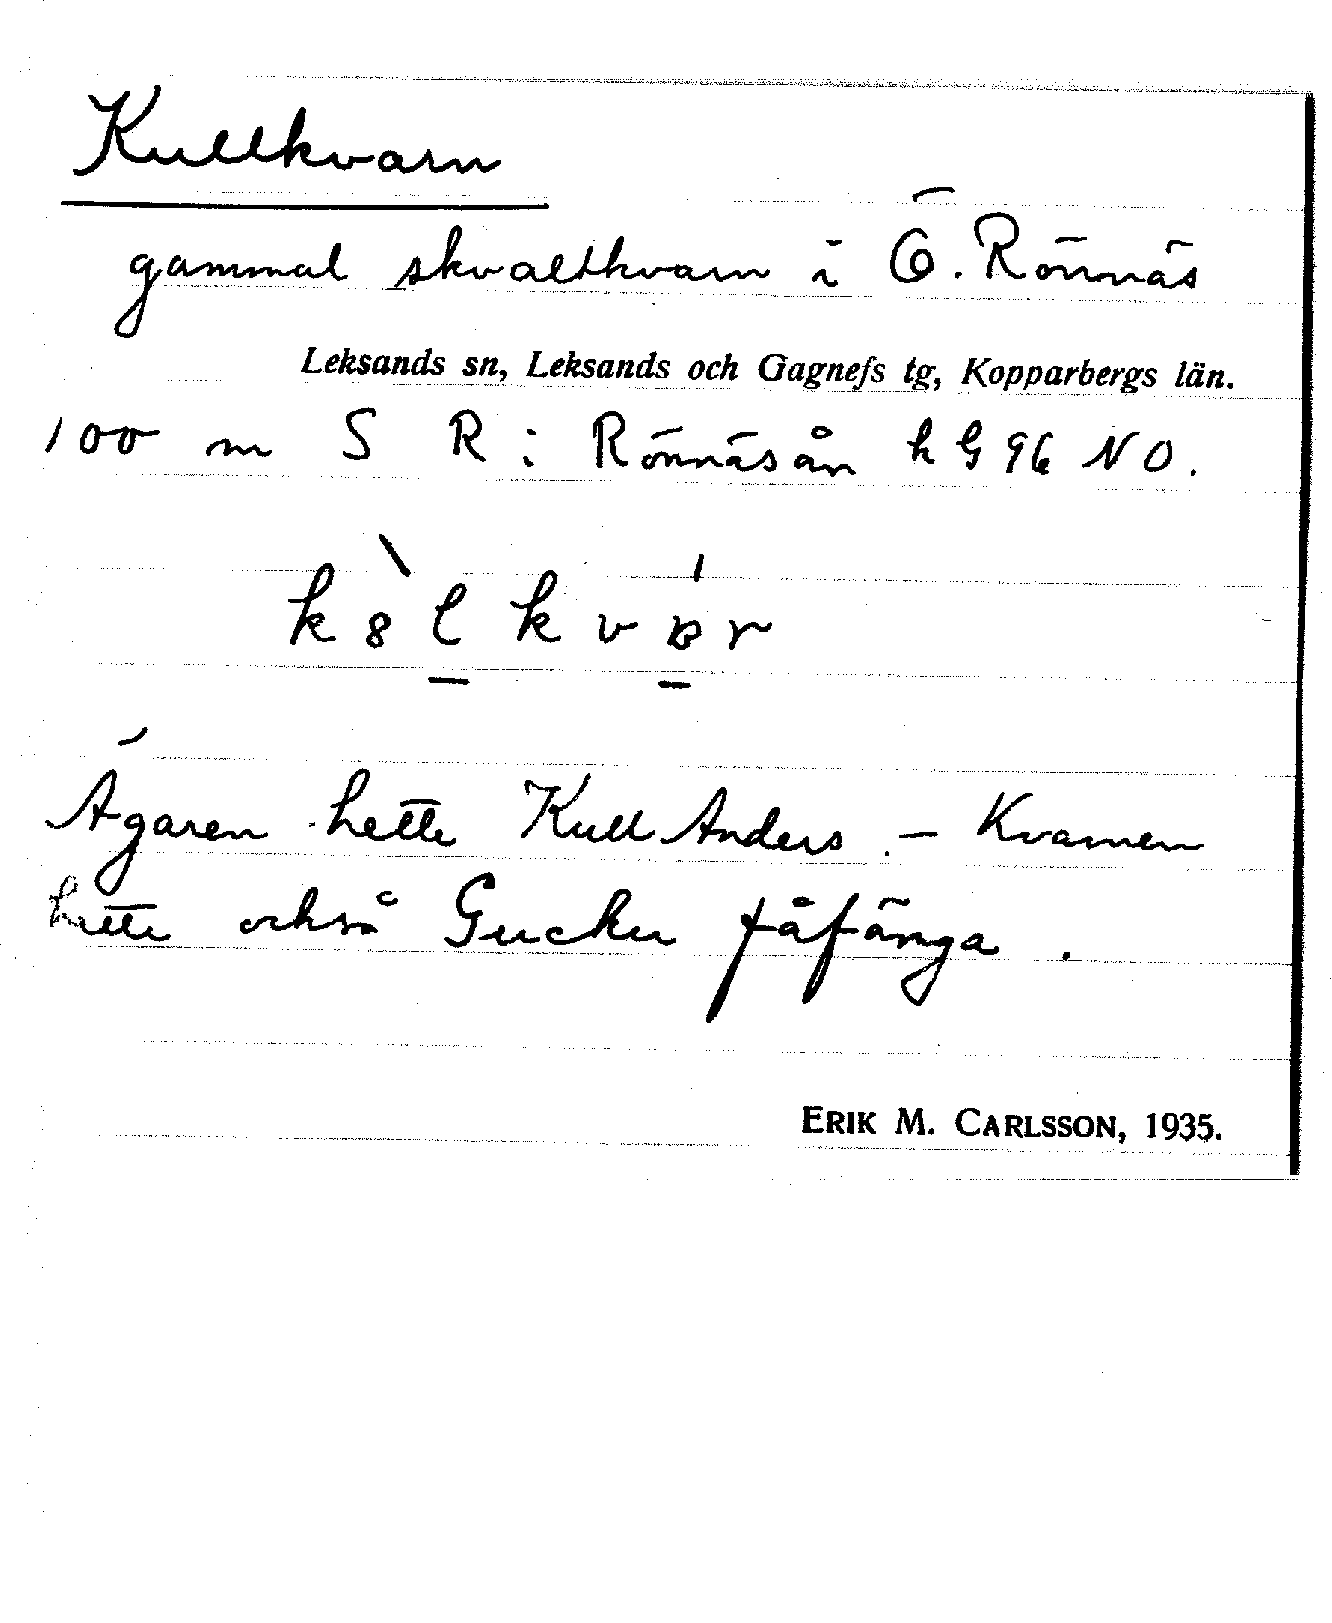 Kullkvarn
gammal skvaltkvarn i Ö. Rönnäs
Leksands sn, Leksands och Gagnefs tg, Kopparbergs län.
100 m S R: Rönnäsån k G 96 NO.
k 8 l k v r
Ägaren hette Kull Anders. – Kvarnen
hette också Gucku fåfänga.
ERIK M. CARLSSON, 1935.